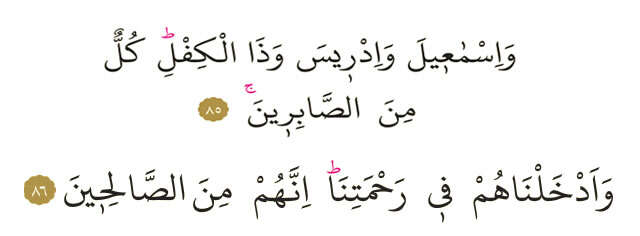 وَاِسْمٰع۪يلَ وَاِدْر۪يسَ وَذَا الْكِفْلِۜ كُلٌّ
مِنَ الصَّابِر۪ينَۚ ﴿٨٥﴾
وَاَدْخَلْنَاهُمْ ف۪ي رَحْمَتِنَاۜ اِنَّهُمْ مِنَ الصَّالِح۪ينَ ﴿٨٦﴾